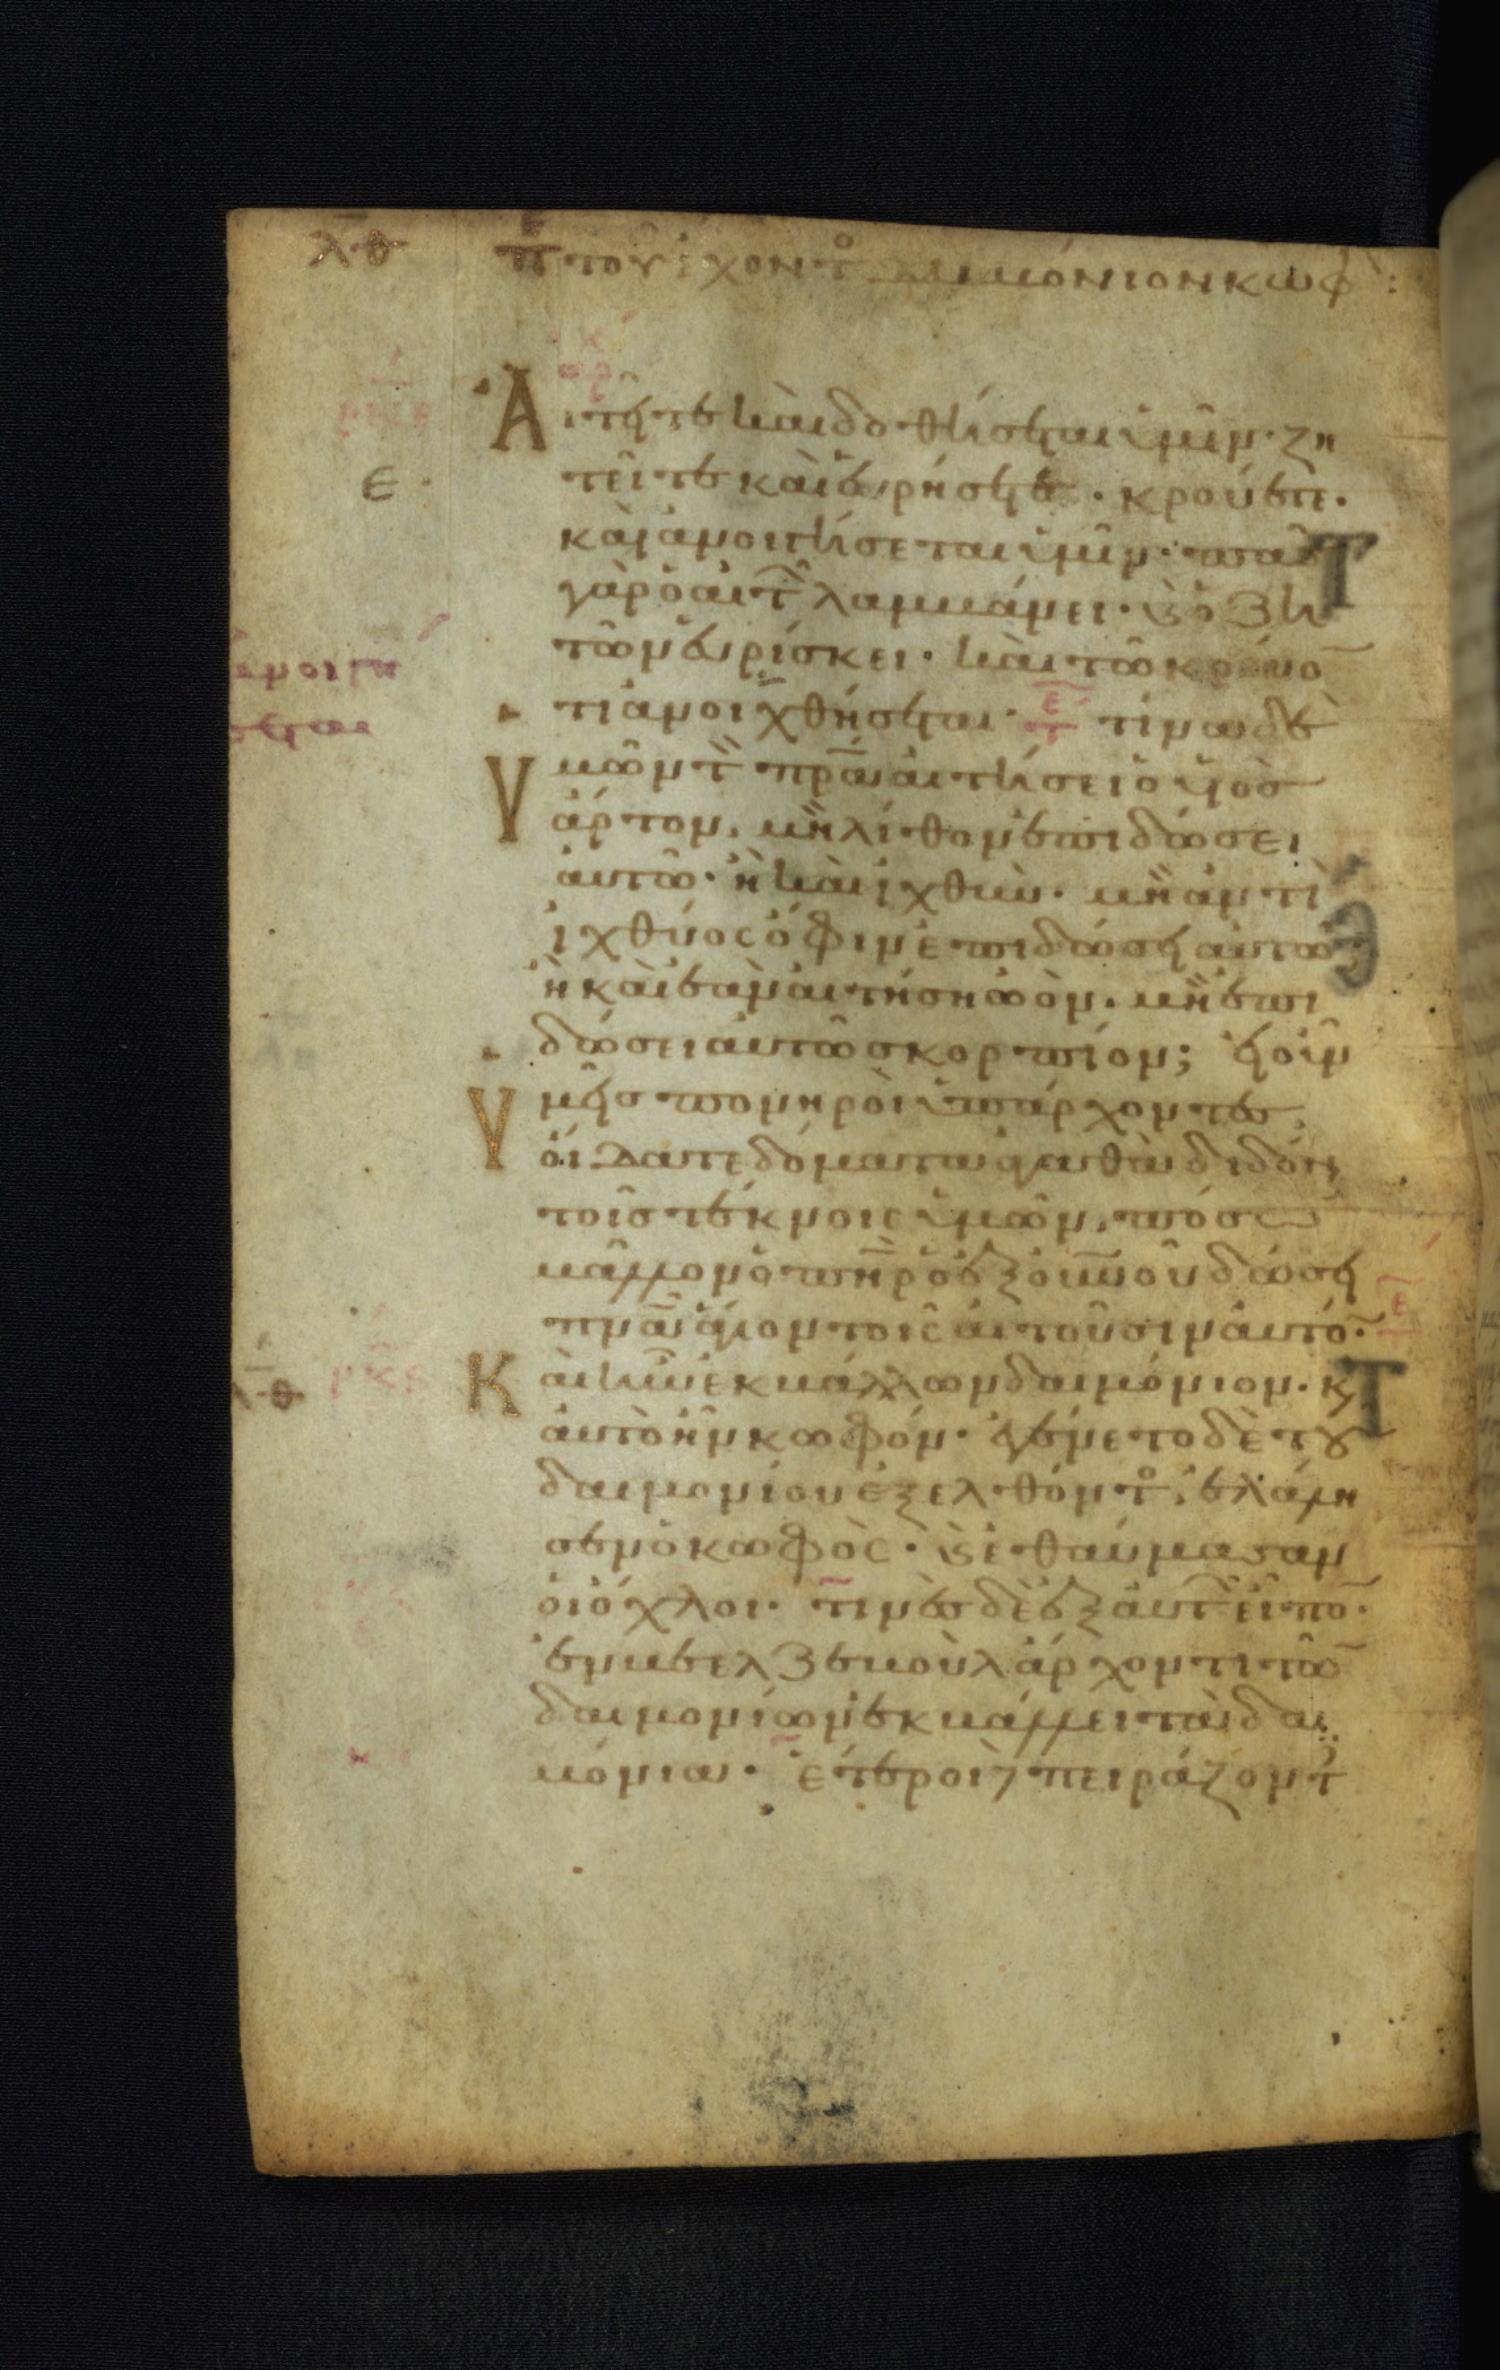 λ·θ π̅ε τοῦ ἔχοντο δαιμόνιον κωφ :
Αἰτεῖτε καὶ δοθήσεται ὑμῖν· ζη
τεῖτε καὶ εὑρήσετε· κρούετε·
καὶ ἀνοιγήσεται ὑμῖν· πᾶς
γὰρ ὁ αἰτῶν λαμβάνει· καὶ ὁ ζη
τῶν εὑρίσκει· καὶ τῶ κρούο̅
τι ἀνοιχθήσεται· τίνα δὲ
ὑμῶν τὸν π̅ρ̅α̅ αἰτήσει ὁ υἱὸς
ἄρτον, μὴ λίθον ἐπιδώσει
αὐτῶ· ἢ καὶ ἰχθὺν· μὴ ἀντὶ
ἰχθύος ὄφιν ἐπιδώσει αὐτῶ·
ἢ καὶ ἐὰν αἰτήση ὠὸν· μὴ ἐπι
δώσει αὐτῶ σκορπίον; εἰ οὖν
ὑμεῖς πονηροὶ ὑπάρχοντες,
οἴδατε δόματα ἀγαθὰ διδόναι
τοῖς τέκνοις ὑμῶν, πόσω
μᾶλλον ὁ π̅η̅ρ̅ ὁ ἐξ οὐ̅νοῦ δώσει
π̅ν̅α̅ ἅγιον τοῖς αἰτοῦσιν αὐτό̅·
Καὶ ἦν ἐκβάλλων δαιμόνιον· κ
αὐτὸ ἦν κωφόν· ἐγένετο δὲ τοῦ
δαιμονίου ἐξελθόντο, ἐλάλη
σεν ὁ κωφὸς· καὶ ἐθαύμασαν
οἱ ὄχλοι· τινὲς δὲ ἐξ αὐτῶν εἶπο̅·
ἐν βεελζεβοὺλ ἄρχοντι τῶ̅
δαιμονίων ἐκβάλλει τὰ δαι
μόνια· ἕτεροι δὲ πειράζοντ